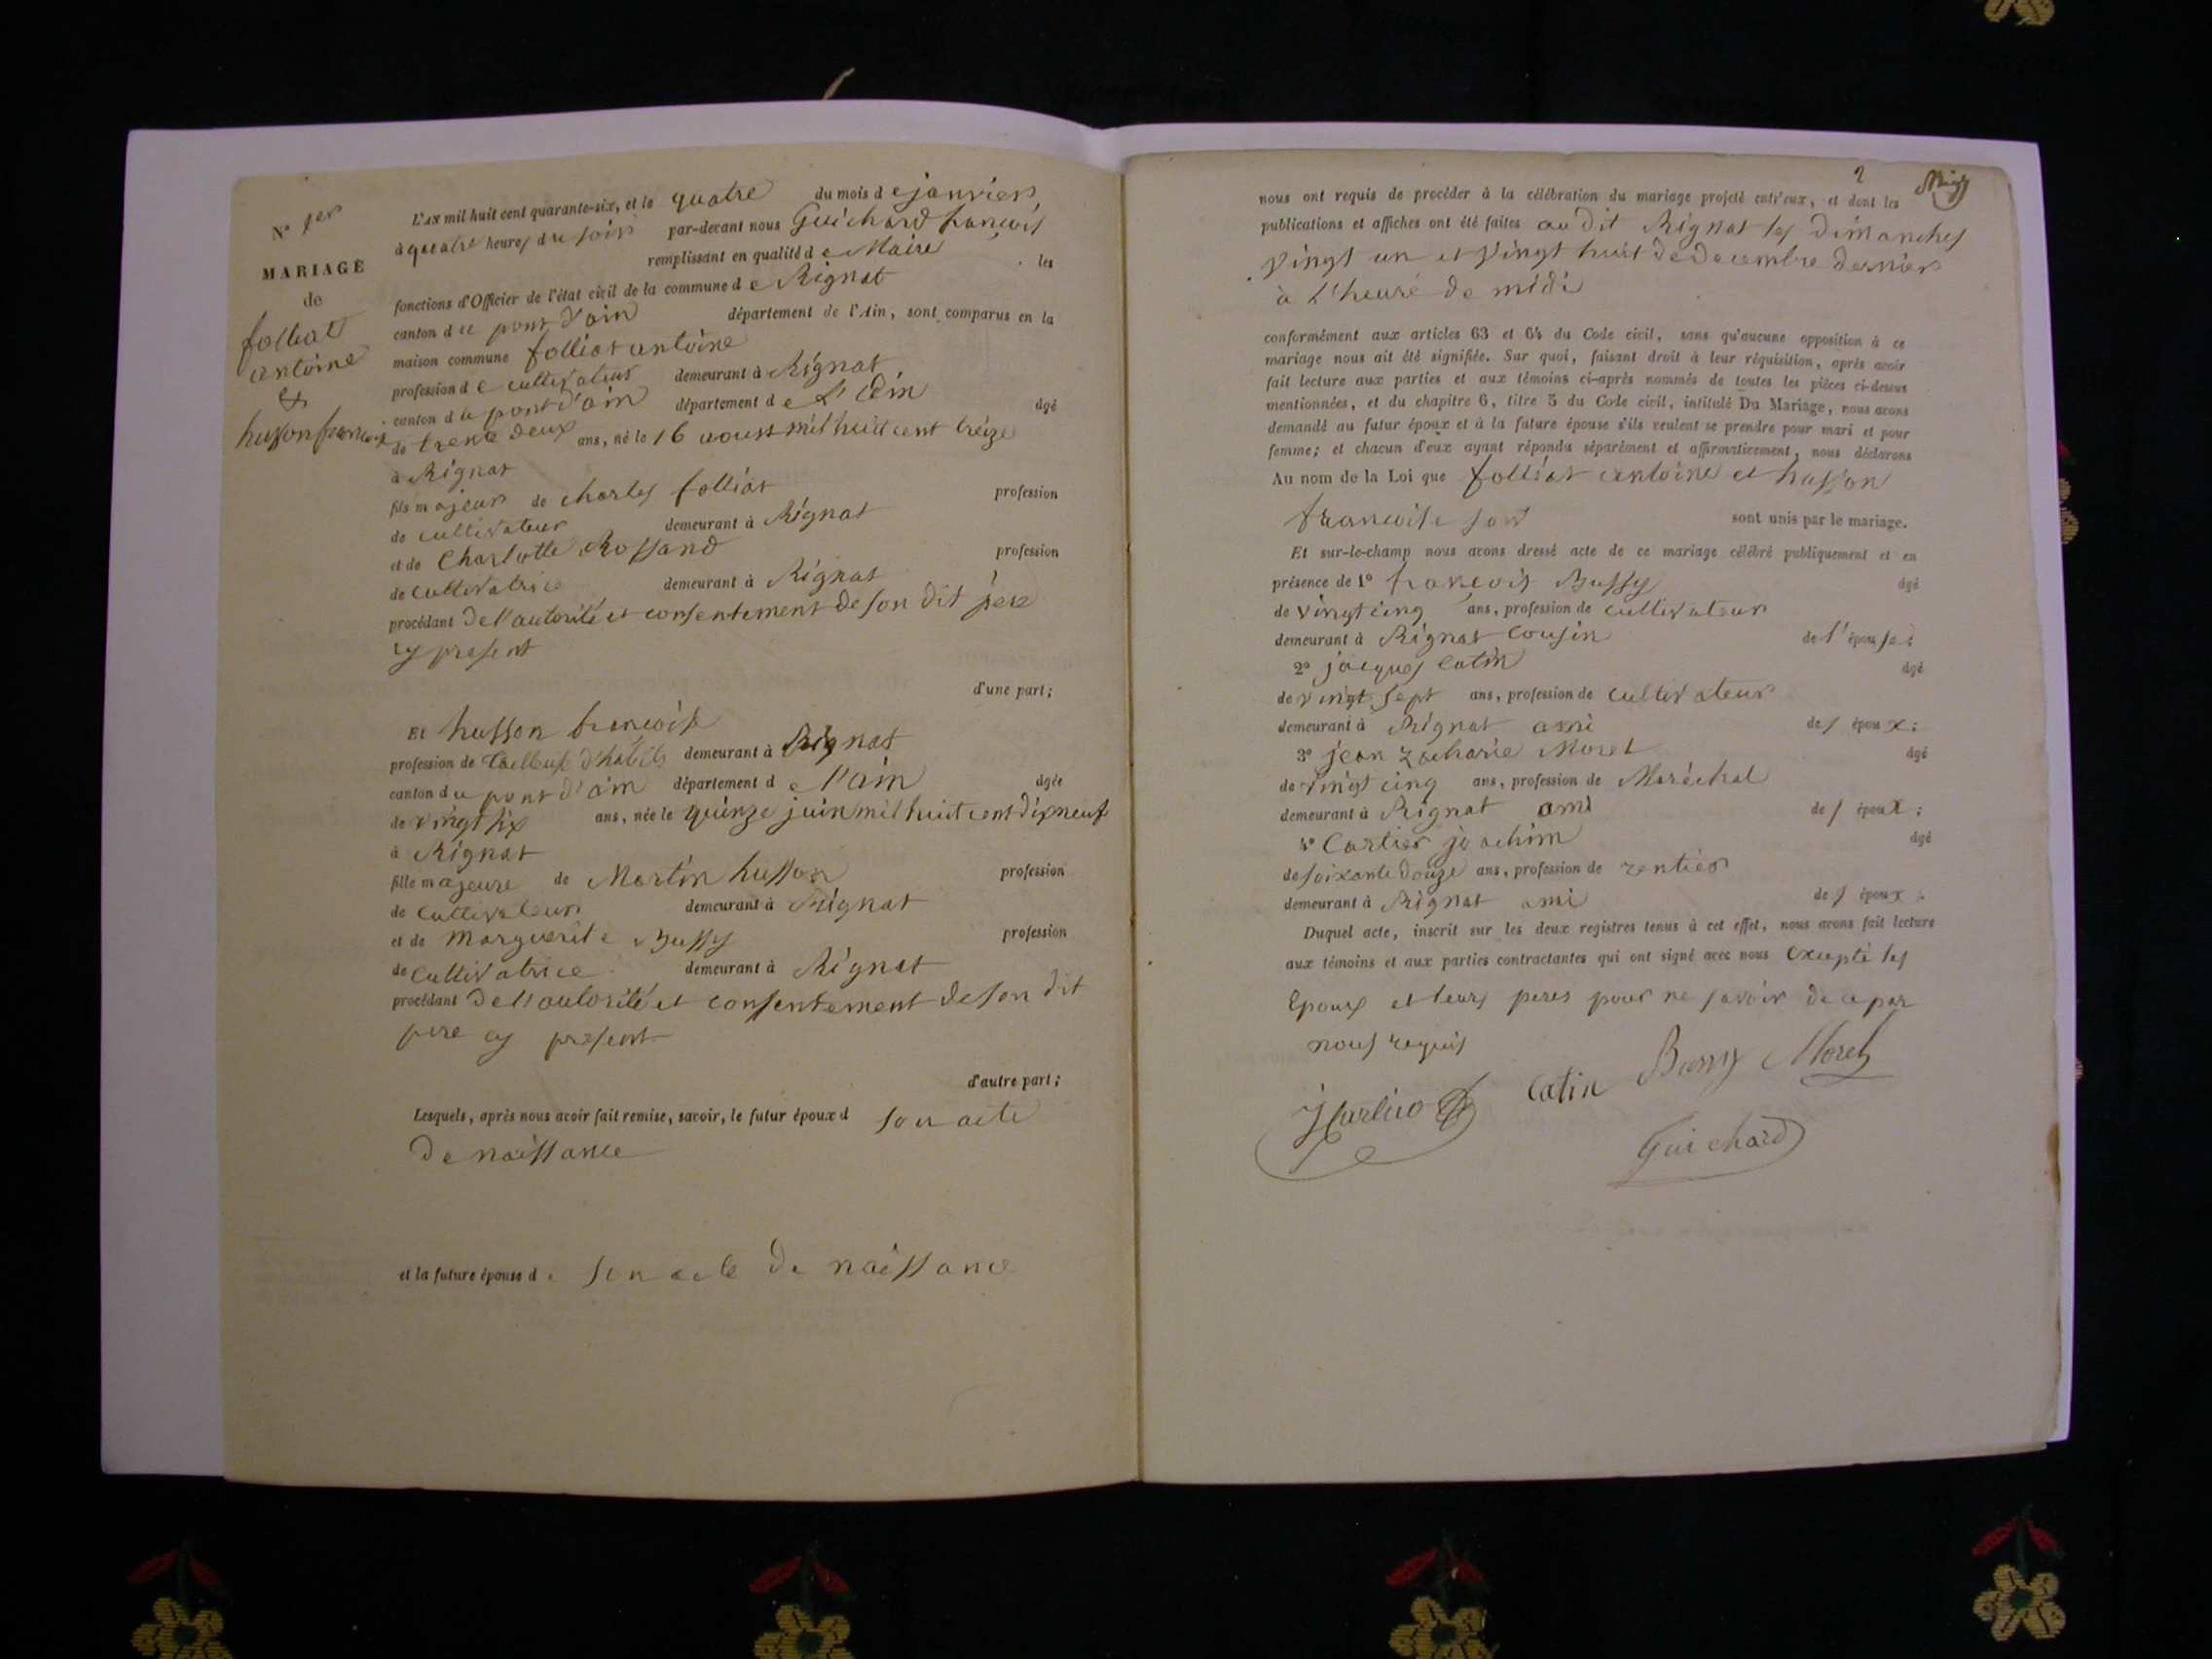 N° 1er
MARIAGE
de
folliat
antoine
&
husson francoise
L'AN mil huit cent quarante-six, et le quatre du mois de janvier
à quatre heures du soir par-devant nous Guichard francois
remplissant en qualité de Maire les
fonctions d'Officier de l'état civil de la commune de Rignat
canton de pont d'ain département de l'Ain, sont comparus en la
maison commune folliat antoine
profession de cultivateur demeurant à Rignat
canton de pont d'ain département de L'ain âgé
de trente deux ans, né le 16 aoust mil huit cent treize
à Rignat
fils majeur de charles folliat profession
de cultivateur demeurant à Rignat
et de Charlotte Rossand profession
de cultivatrice demeurant à Rignat
procédant de l'autorité et consentement de son dit pere
cy present
d'une part;
Et husson francoise
profession de tailleuse d'habits demeurant à Rignat
canton de pont d'ain département de l'ain âgée
de vingt six ans, née le quinze juin mil huit cent dix neuf
à Rignat
fille majeure de Martin husson profession
de cultivateur demeurant à Rignat
et de Marguerite Bussy profession
de cultivatrice demeurant à Rignat
procédant de l'autorité et consentement de son dit
pere cy present
d'autre part;
Lesquels, après nous avoir fait remise, savoir, le futur époux d son acte
de naissance
et la future épouse de son acte de naissance
2
nous ont requis de procéder à la célébration du mariage projeté entr'eux, et dont les
publications et affiches ont été faites au dit Rignat les dimanches
vingt un et vingt huit de decembre dernier
à l'heure de midi
conformément aux articles 63 et 64 du Code civil, sans qu'aucune opposition à ce
mariage nous ait été signifiée. Sur quoi, faisant droit à leur réquisition, après avoir
fait lecture aux parties et aux témoins ci-après nommés de toutes les pièces ci-dessus
mentionnées, et du chapitre 6, titre 5 du Code civil, intitulé Du Mariage, nous avons
demandé au futur époux et à la future épouse s'ils veulent se prendre pour mari et pour
femme; et chacun d'eux ayant répondu séparément et affirmativement, nous déclarons
Au nom de la Loi que folliat antoine et husson
francoise sont sont unis par le mariage.
Et sur-le-champ nous avons dressé acte de ce mariage célébré publiquement et en
présence de 1° francois Bussy âgé
de vingt cinq ans, profession de cultivateur
demeurant à Rignat cousin de l'épouse;
2° jacques Catin âgé
de vingt sept ans, profession de cultivateur
demeurant à Rignat ami des époux;
3° jean zacharie Morel âgé
de vingt cinq ans, profession de Maréchal
demeurant à Rignat ami des époux;
4° Cartier joachim âgé
de soixante douze ans, profession de rentier
demeurant à Rignat ami des époux;
Duquel acte, inscrit sur les deux registres tenus à cet effet, nous avons fait lecture
aux témoins et aux parties contractantes qui ont signé avec nous excepté les
Epoux et leurs peres pour ne savoir de ce par
nous requis
Catin Bussy Morel
Guichard